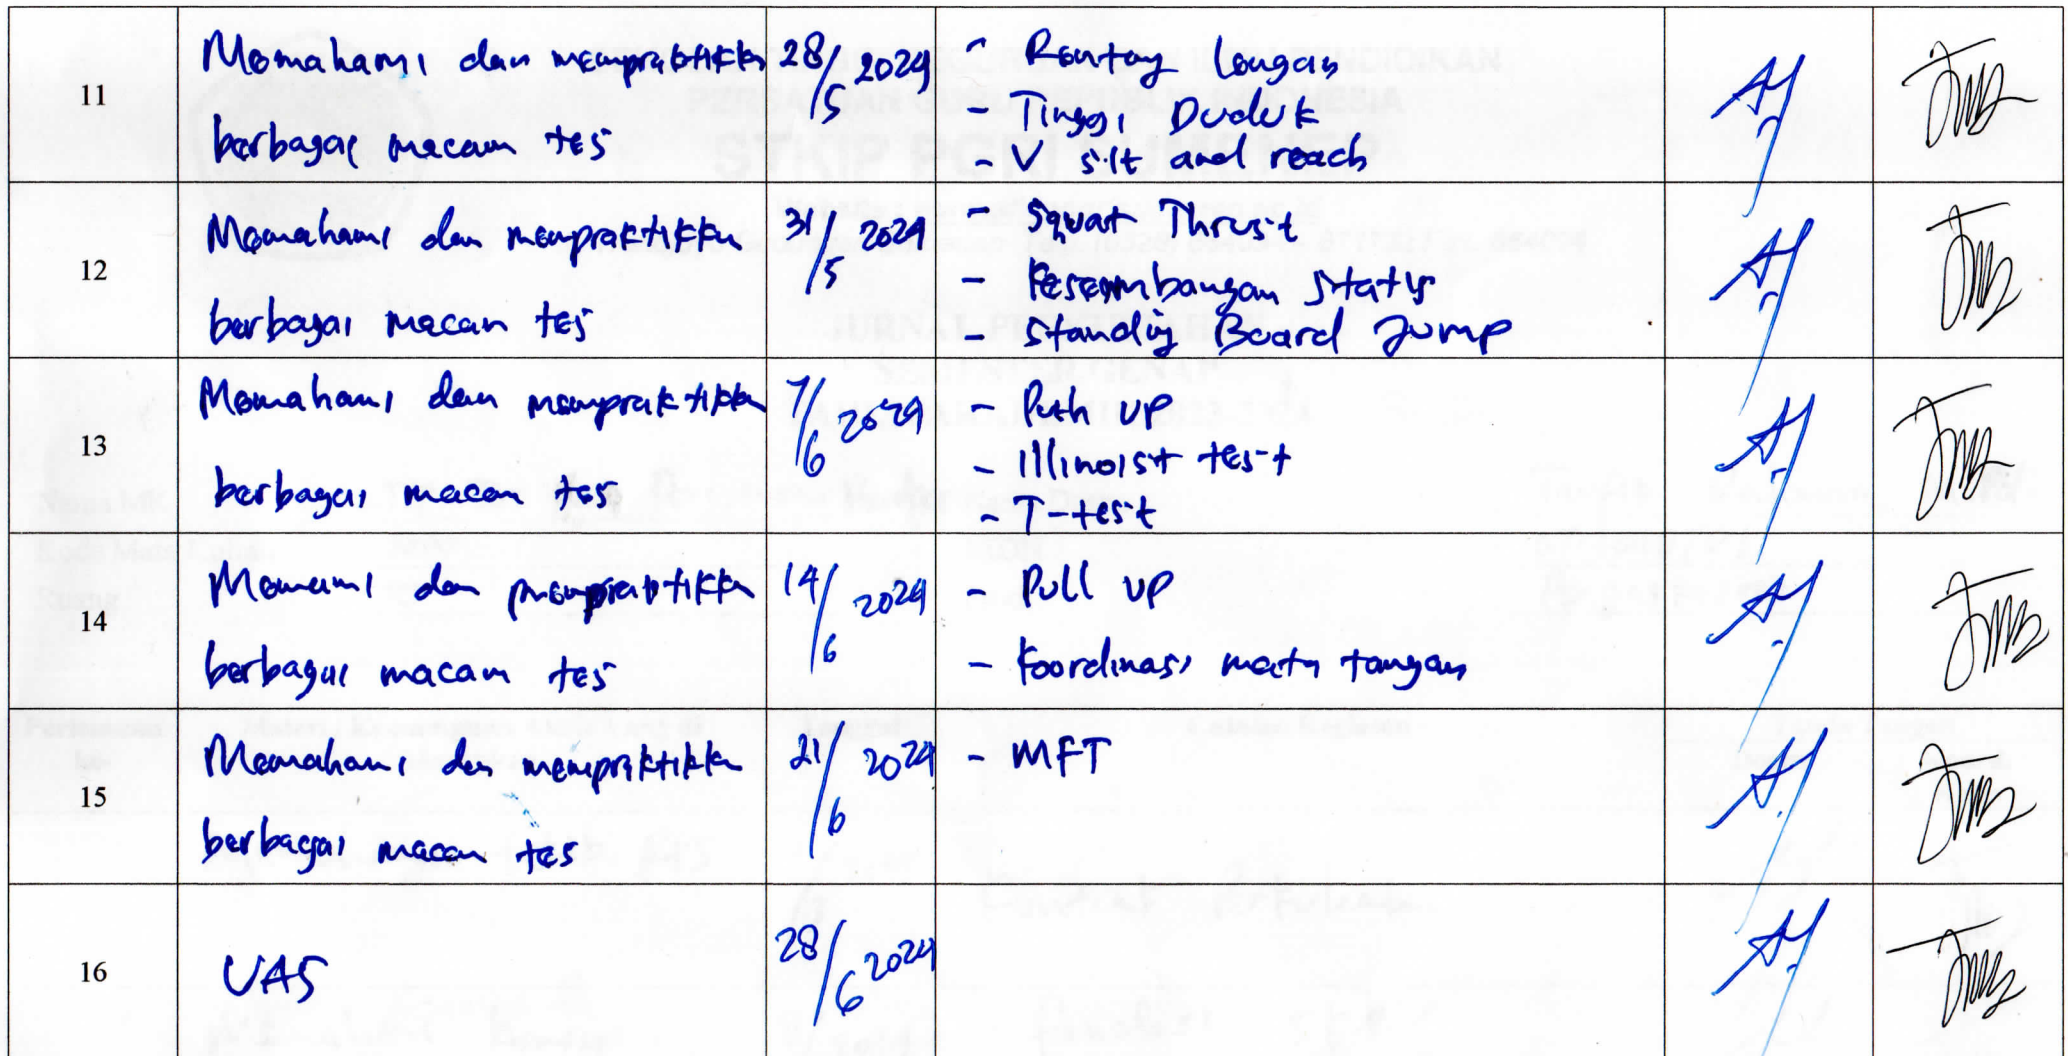 11
Memahami dan mempraktikkn
berbagai macam tes
28/5 2024
- Rentang Lengan
- Tinggi Duduk
- V sit and reach
12
Memahami dan mempraktikkn
berbagai macam tes
31/5 2024
- Squat Thrust
- Keseimbangan Statis
- Standing Board Jump
13
Memahami dan mempraktikkn
berbagai macam tes
7/6 2024
- Push up
- Illinoist test
- T-test
14
Memami dan mempraktikkn
berbagai macam tes
14/6 2024
- Pull up
- Koordinasi mata tangan
15
Memahami dan mempraktikkn
berbagai macam tes
21/6 2024
- MFT
16
UAS
28/6 2024